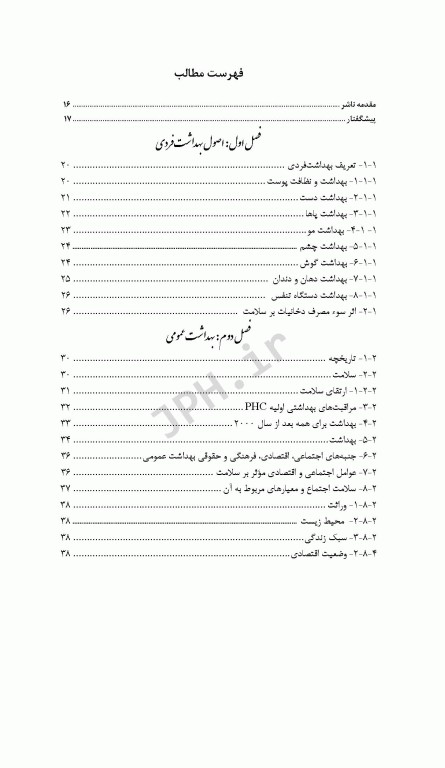 فهرست مطالب
مقدمه ناشر ........ ۱۶
پیشگفتار ........ ۱۷
فصل اول: اصول بهداشت فردی
۱-۱- تعریف بهداشت‌فردی ........ ۲۰
۱-۱-۱- بهداشت و نظافت پوست ........ ۲۰
۲-۱-۱- بهداشت دست ........ ۲۱
۳-۱-۱- بهداشت پاها ........ ۲۲
۴-۱-۱- بهداشت مو ........ ۲۳
۵-۱-۱- بهداشت چشم ........ ۲۴
۶-۱-۱- بهداشت گوش ........ ۲۴
۷-۱-۱- بهداشت دهان و دندان ........ ۲۵
۸-۱-۱- بهداشت دستگاه تنفس ........ ۲۶
۲-۱- اثر سوء مصرف دخانیات بر سلامت ........ ۲۶
فصل دوم: بهداشت عمومی
۱-۲- تاریخچه ........ ۳۰
۲-۲- سلامت ........ ۳۰
۱-۲-۲- ارتقای سلامت ........ ۳۱
۳-۲- مراقبت‌های بهداشتی اولیه PHC ........ ۳۲
۴-۲- بهداشت برای همه بعد از سال ۲۰۰۰ ........ ۳۳
۵-۲- بهداشت ........ ۳۴
۶-۲- جنبه‌های اجتماعی، اقتصادی، فرهنگی و حقوقی بهداشت عمومی ........ ۳۶
۷-۲- عوامل اجتماعی و اقتصادی مؤثر بر سلامت ........ ۳۶
۸-۲- سلامت اجتماع و معیارهای مربوط به آن ........ ۳۷
۱-۸-۲- وراثت ........ ۳۸
۲-۸-۲- محیط زیست ........ ۳۸
۳-۸-۲- سبک زندگی ........ ۳۸
۴-۸-۲- وضعیت اقتصادی ........ ۳۸
JPH.ir